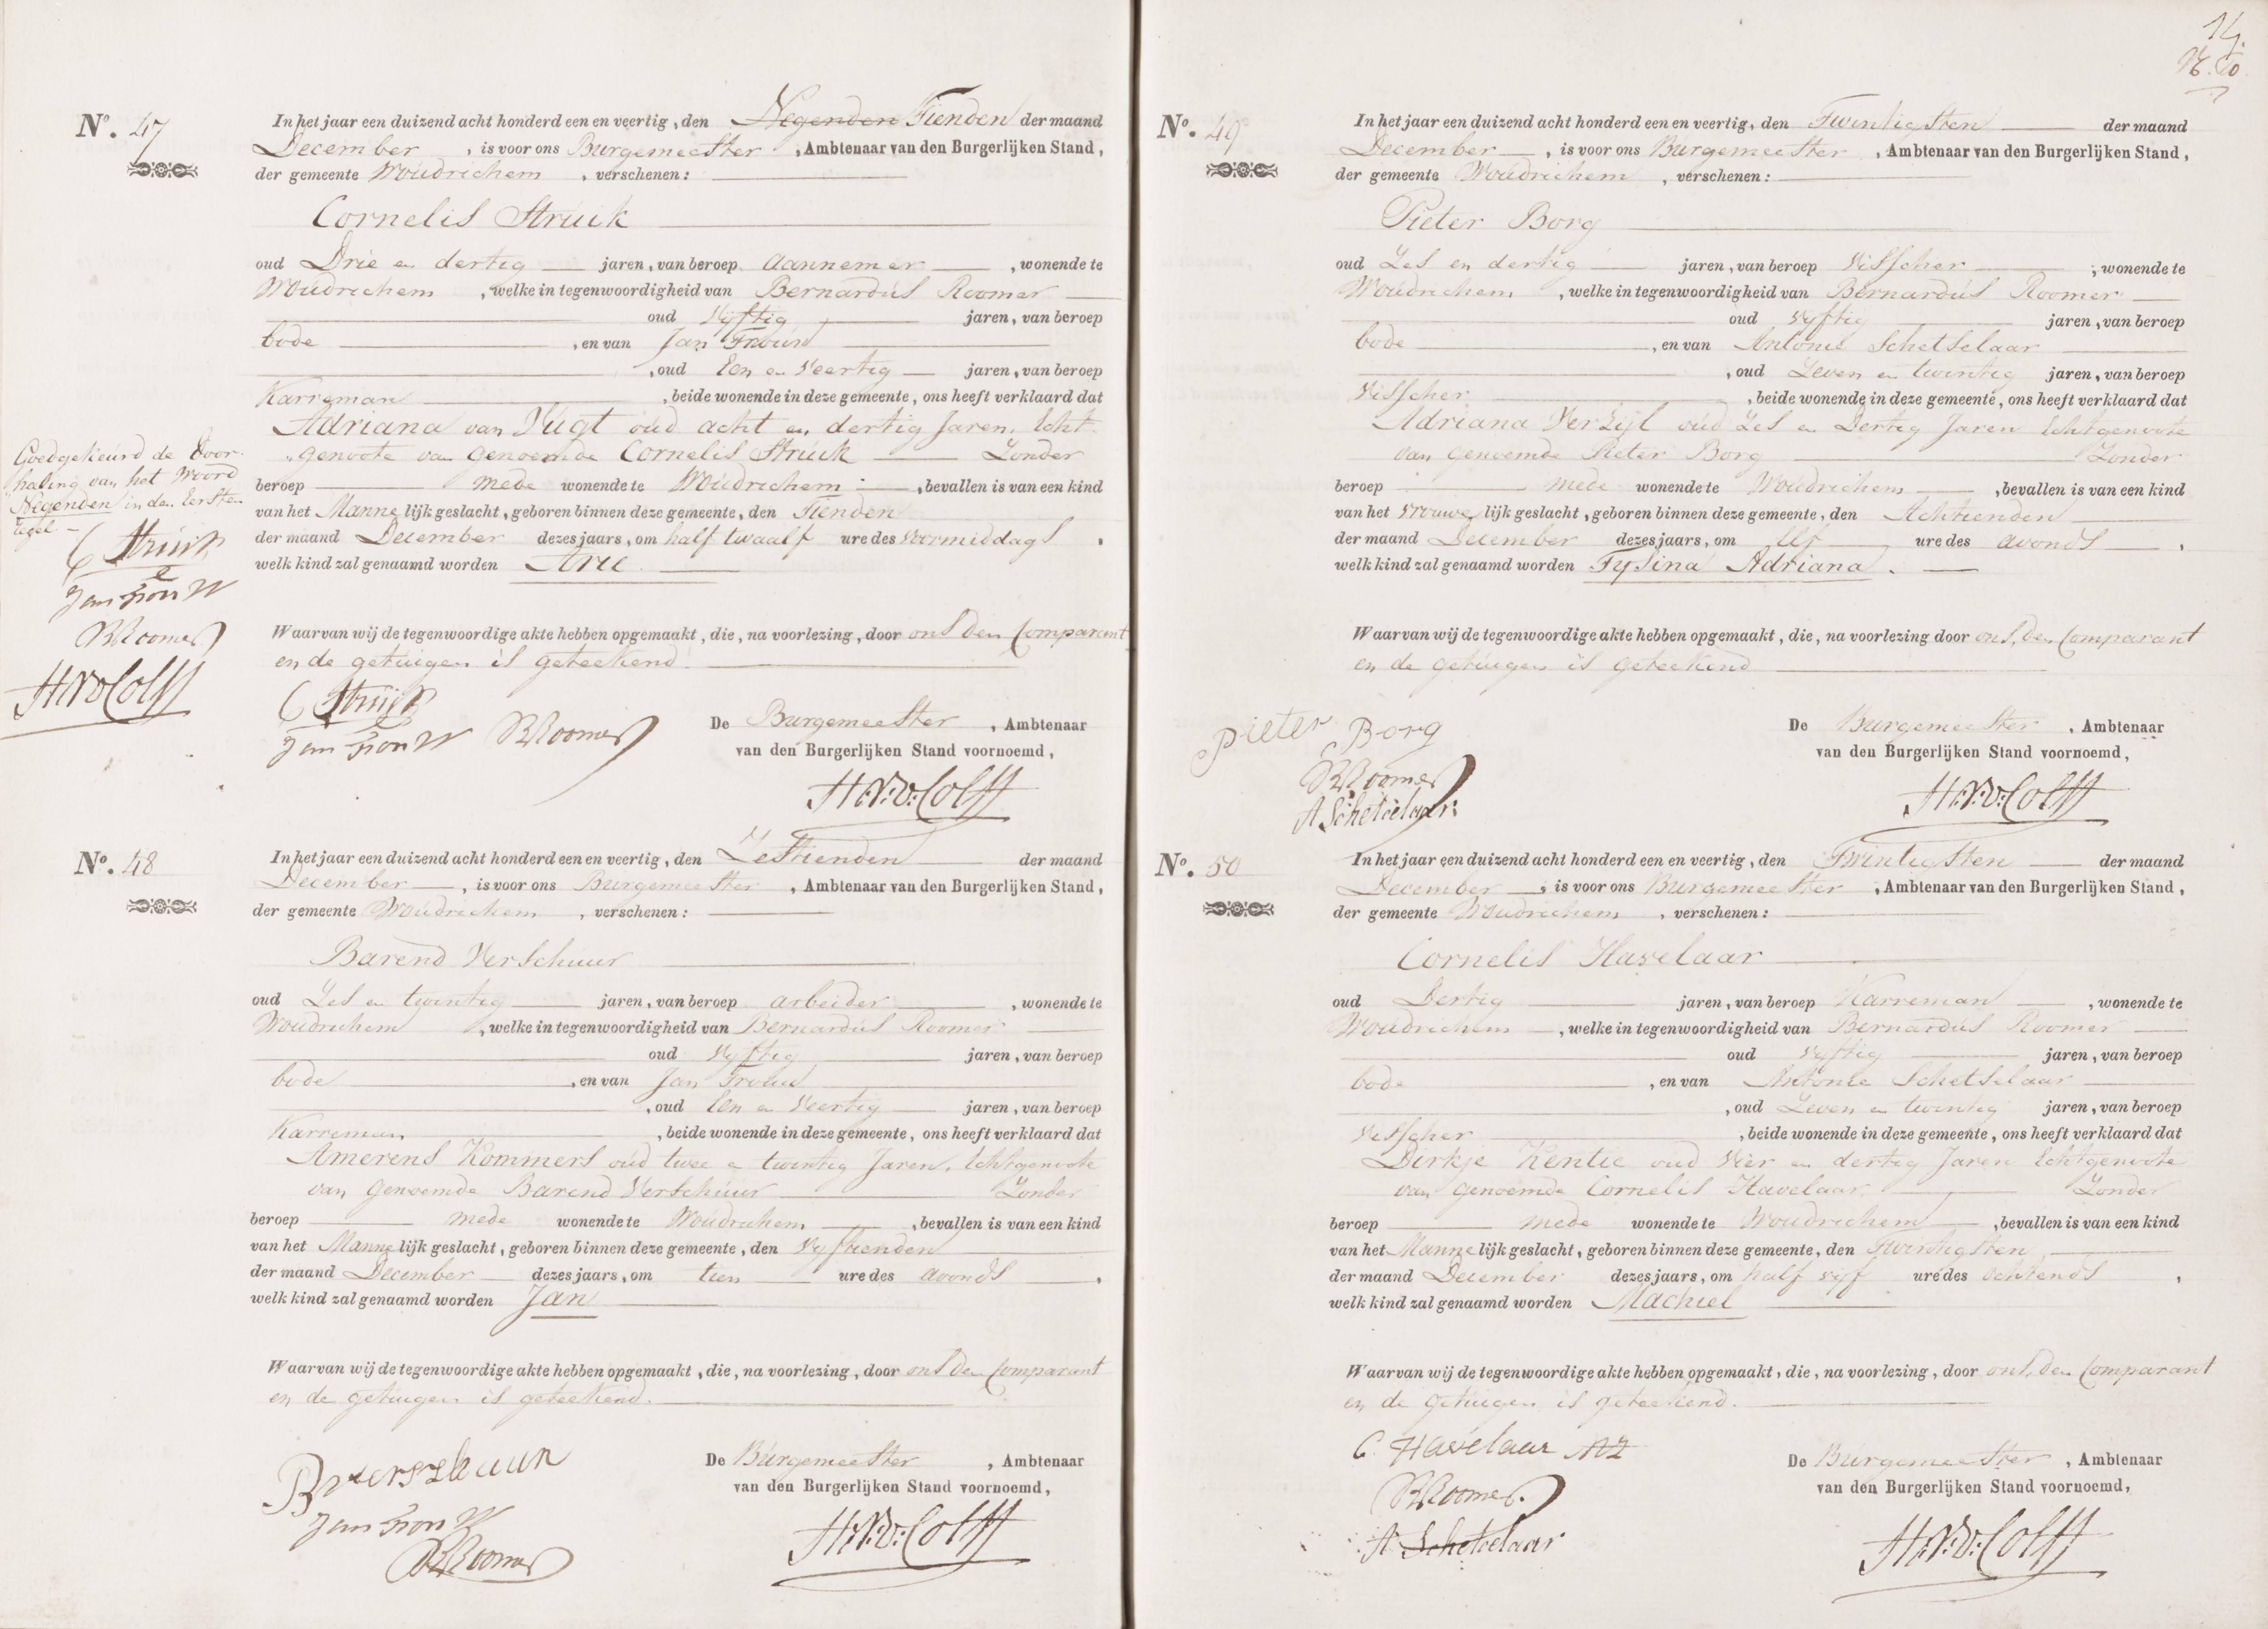 N.º 47
In het jaar een duizend acht honderd een en veertig, den Negenden Tienden der maand
December, is voor ons Burgemeester, Ambtenaar van den Burgerlijken Stand,
der gemeente Woudrichem, verschenen:
Cornelis Struik
oud Drie en dertig jaren, van beroep aannemer, wonende te
Woudrichem, welke in tegenwoordigheid van Bernardus Roomer
oud Vijftig jaren, van beroep
bode, en van Jan Trouw
, oud Een en Veertig jaren, van beroep
Karreman, beide wonende in deze gemeente, ons heeft verklaard dat
Adriana van Vugt oud acht en dertig Jaren, Echt
genoote van genoemde Cornelis Struik Zonder
beroep mede wonende te Woudrichem, bevallen is van een kind
van het Mannelijk geslacht, geboren binnen deze gemeente, den Tienden
der maand December dezes jaars, om half twaalf ure des voormiddags,
welk kind zal genaamd worden Arie.
Waarvan wij de tegenwoordige akte hebben opgemaakt, die, na voorlezing, door ons den Comparant
en de getuigen is geteekend.
C Struik
Jan Trouw BRoomer
De Burgemeester, Ambtenaar
van den Burgerlijken Stand voornoemd,
H:N:v:Colff
Goedgekeurd de Door-
haling van het Woord
Negenden in den Eersten
regel
C Struik
Jan Trouw
BRoomer
HNvColff
N.º 48
In het jaar een duizend acht honderd een en veertig, den Zestienden der maand
December, is voor ons Burgemeester, Ambtenaar van den Burgerlijken Stand,
der gemeente Woudrichem, verschenen:
Barend Verschuur
oud Zes en twintig jaren, van beroep arbeider, wonende te
Woudrichem, welke in tegenwoordigheid van Bernardus Roomer
oud Vyftig jaren, van beroep
bode, en van Jan Trouw
, oud Een en Veertig jaren, van beroep
Karreman, beide wonende in deze gemeente, ons heeft verklaard dat
Amerens Kommers oud twee en twintig Jaren, Echtgenoote
van genoemde Barend Verschuur Zonder
beroep mede wonende te Woudrichem, bevallen is van een kind
van het Mannelijk geslacht, geboren binnen deze gemeente, den Vyftienden
der maand December dezes jaars, om tien ure des avonds,
welk kind zal genaamd worden Jan
Waarvan wij de tegenwoordige akte hebben opgemaakt, die, na voorlezing, door ons den Comparant
en de getuigen is geteekend.
B verschuur
Jan Trouw
BRoomer
De Burgemeester, Ambtenaar
van den Burgerlijken Stand voornoemd,
H:N:v:Colff
14.
N.º 49
In het jaar een duizend acht honderd een en veertig, den Twintigsten der maand
December, is voor ons Burgemeester, Ambtenaar van den Burgerlijken Stand,
der gemeente Woudrichem, verschenen:
Pieter Borg
oud Zes en dertig jaren, van beroep Visscher, wonende te
Woudrichem, welke in tegenwoordigheid van Bernardus Roomer
oud vyftig jaren, van beroep
bode, en van Antonie Schetselaar
, oud Zeven en twintig jaren, van beroep
Visscher, beide wonende in deze gemeente, ons heeft verklaard dat
Adriana Verzijl oud Zes en Dertig Jaren Echtgenoote
van genoemde Pieter Borg Zonder
beroep mede wonende te Woudrichem, bevallen is van een kind
van het Vrouwelijk geslacht, geboren binnen deze gemeente, den Achtienden
der maand December dezes jaars, om Elf ure des avonds,
welk kind zal genaamd worden Fysina Adriana.
Waarvan wij de tegenwoordige akte hebben opgemaakt, die, na voorlezing door ons, den Comparant
en de getuigen is geteekend
pieter Borg
BRoomer
A Schetselaar
De Burgemeester, Ambtenaar
van den Burgerlijken Stand voornoemd,
H:N:v:Colff
N.º 50
In het jaar een duizend acht honderd een en veertig, den Twintigsten der maand
December, is voor ons Burgemeester, Ambtenaar van den Burgerlijken Stand,
der gemeente Woudrichem, verschenen:
Cornelis Havelaar
oud Dertig jaren, van beroep Karreman, wonende te
Woudrichem, welke in tegenwoordigheid van Bernardus Roomer
oud vyftig jaren, van beroep
bode, en van Antonie Schetselaar
, oud Zeven en twintig jaren, van beroep
Visscher, beide wonende in deze gemeente, ons heeft verklaard dat
Dirkje Kentie oud Vier en dertig Jaren Echtgenoote
van genoemde Cornelis Havelaar Zonder
beroep mede wonende te Woudrichem, bevallen is van een kind
van het Mannelijk geslacht, geboren binnen deze gemeente, den Twintigsten
der maand December dezes jaars, om half vijf ure des ochtends,
welk kind zal genaamd worden Machiel
Waarvan wij de tegenwoordige akte hebben opgemaakt, die, na voorlezing, door ons, den Comparant
en de getuigen is geteekend.
C Havelaar AZ
BRoomer.
A Schetselaar
De Burgemeester, Ambtenaar
van den Burgerlijken Stand voornoemd,
H:N:v:Colff